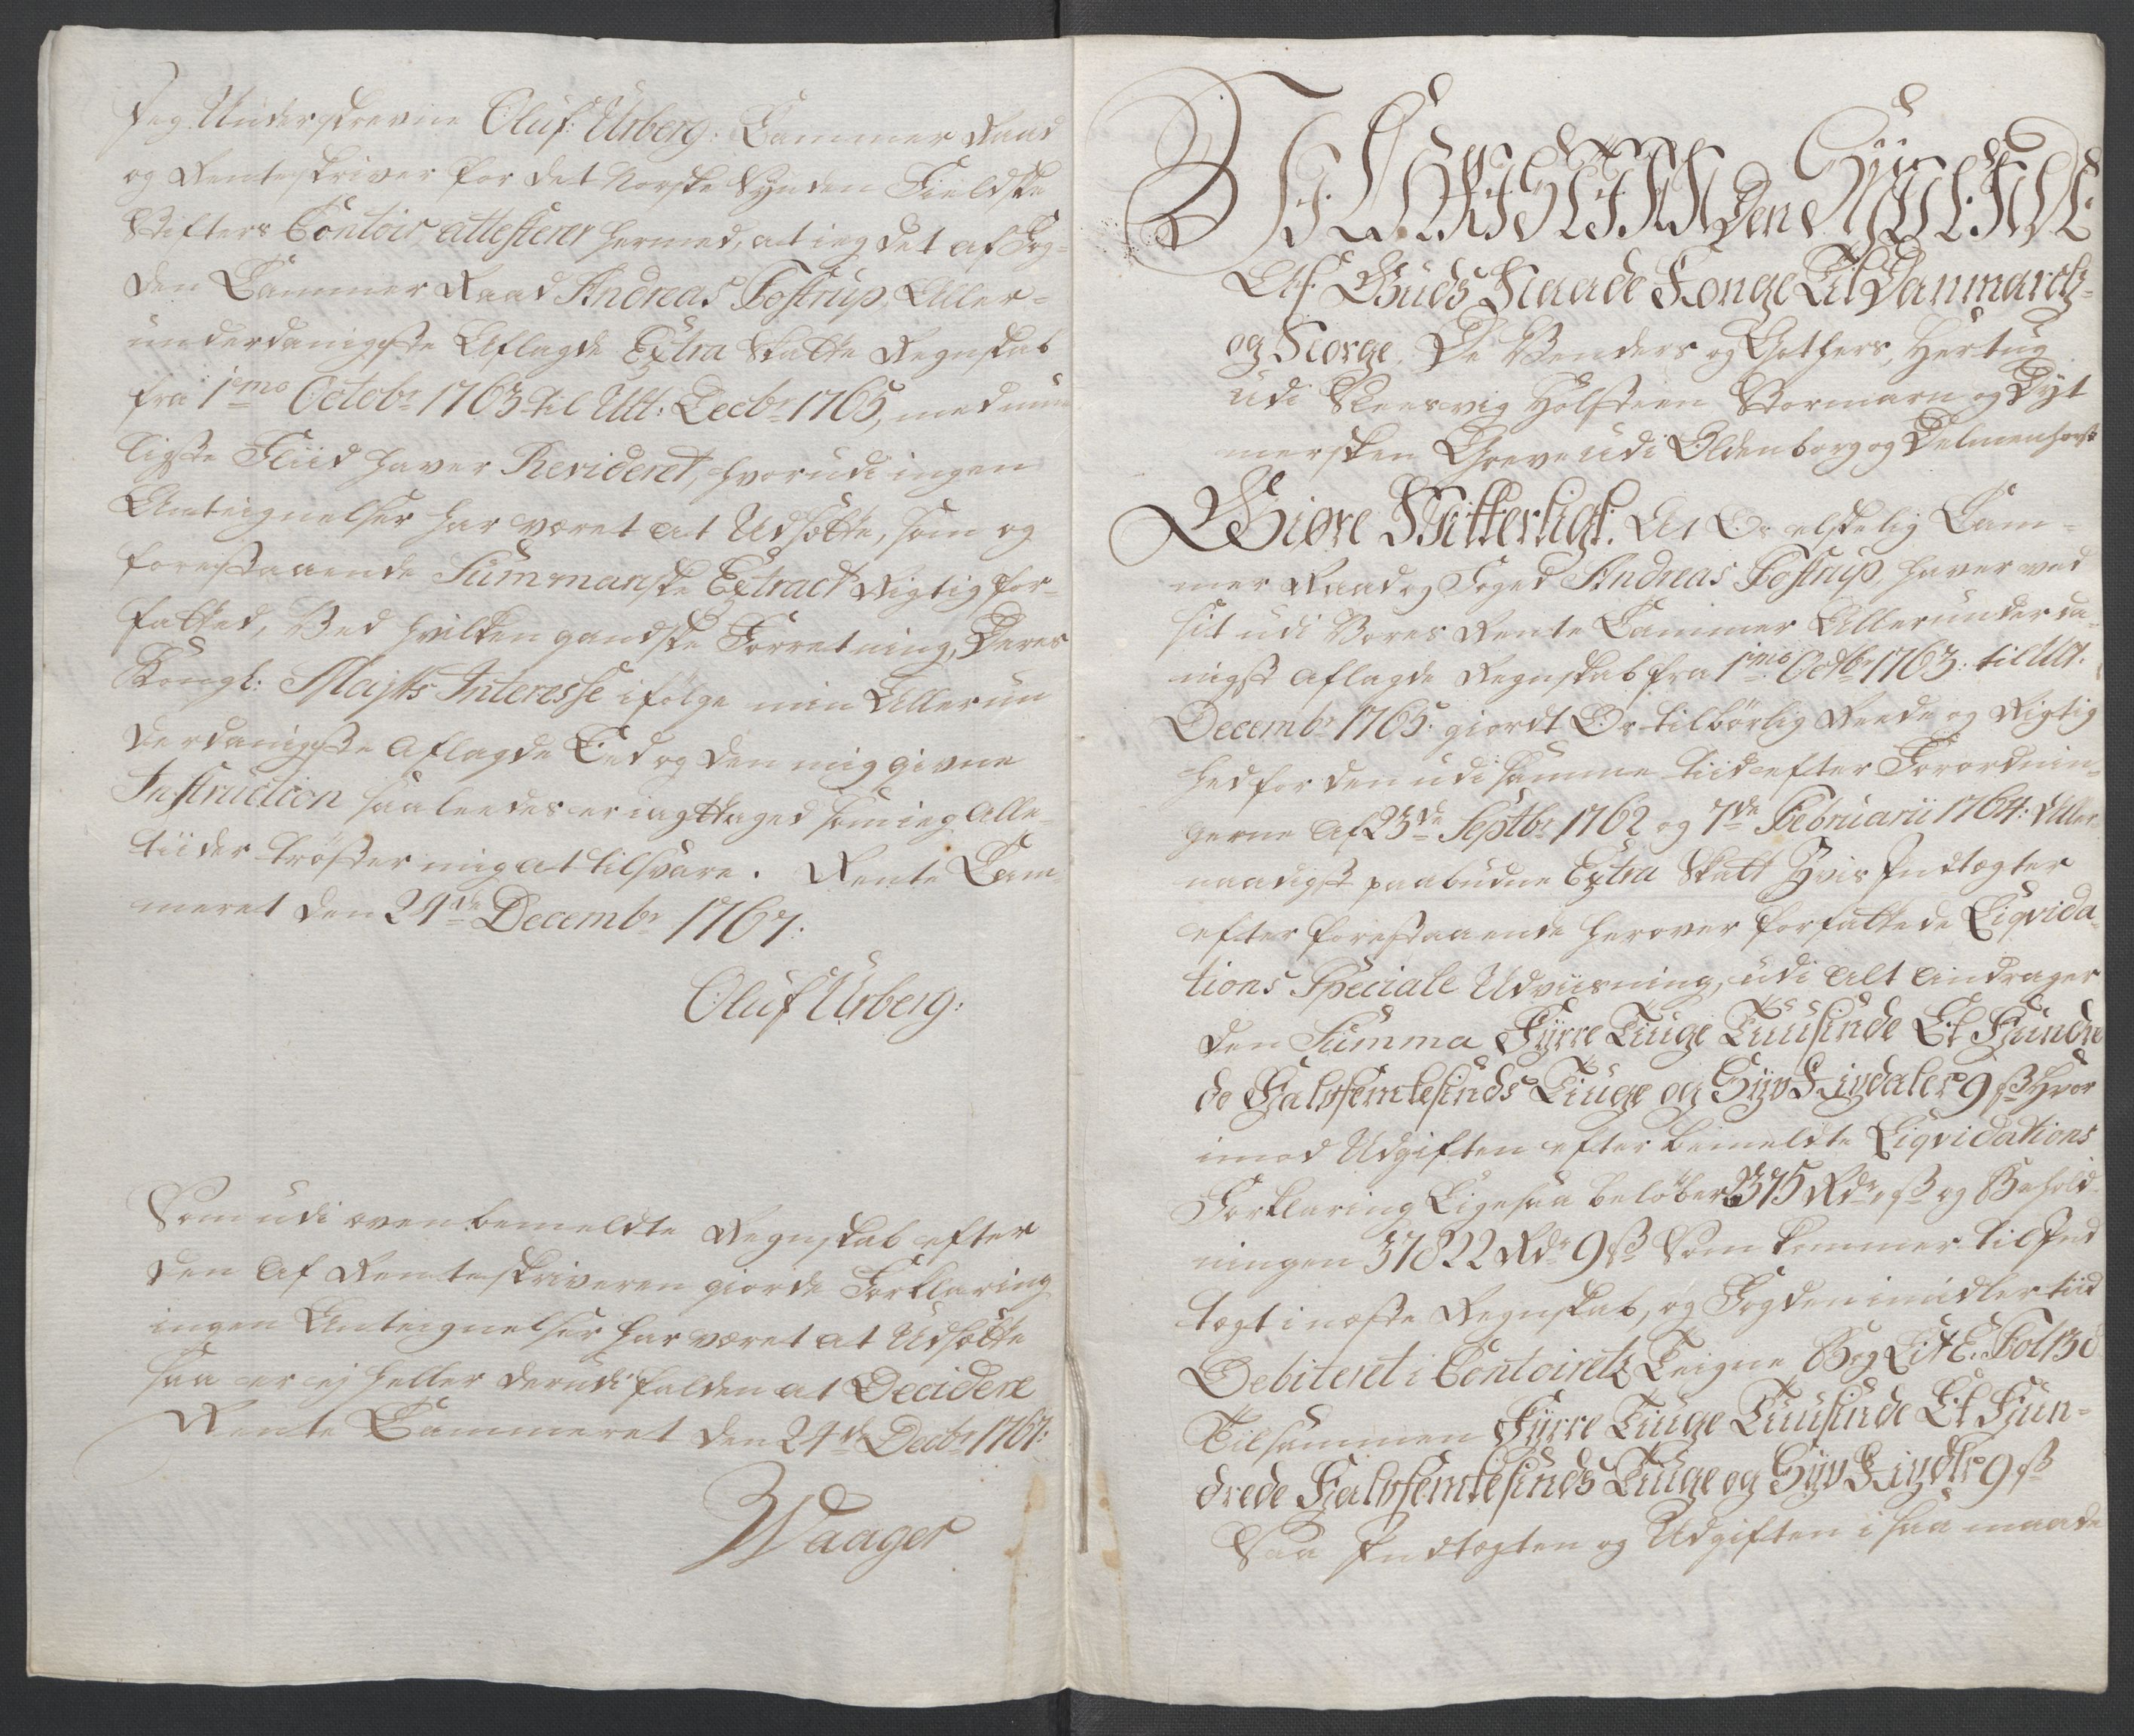 Jeg Underskrevne Oluf Urberg: Cammer Raad
og Renteskriver for det Norske Synden Fieldske
Stifters Contoir attesterer hermed, at jeg det af Fog-
den Cammer Raad Andreas Tostrup Aller-
underdanigste Aflagde Extra Skatte Regnskab
fra 1mo Octobr 1763 til Ult: Decbr 1765, med mue
ligste Fliid haver Revideret, hvorudi ingen
Anteignelser har været at Udsætte, som og
forestaaende Summariske Extract Rigtig for-
fatted, Ved hvilken gandske Forretning, Deres
Kongl: Majts Interesse ifølge min Allerun
derdanigste aflagde Eed og den mig givne
Instruction saaleedes er iagttaged som jeg Alle-
tiider trøster mig at tilsvare. Rente Cam-
meret den 24de Decembr 1767:
Oluf Urberg:
Som udi ovenbemeldte Regnskab efter
den af Renteskriveren giorde Forklaring
ingen Anteignelser har været at Udsætte
saa er ej heller derudi falden at Decidere
Rente Cammeret den 24de Decbr 1767:
Waager
Vi CHRISTIAN Den SYVENDE
Af Guds Naade Konge Til Danmarck-
og Norge, De Venders og Gothers, Hertug
udi Sleesvig Holsteen Stormarn og Dyt
mersken Greve udi Oldenborg og Delmenhorst
Giøre Vitterligt: At Os elskelig Cam-
mer Raad og Foged Andreas Tostrup, haver ved
sit udi Vores Rente Cammer Allerunderda-
nigst aflagde Regnskab fra 1mo Octbr 1763: til Ult:
Decembr 1765: giordt Os tilbørlig Reede og Rigtig
hed for den udi samme tiid efter Forordnin-
gerne af 23de Septbr 1762 og 7de Februarii 1764: Aller-
naadigst paabudne Extra Skatt Hvis Indtægter
efter forestaaende herover forfattede Liqvida-
tions Speciale Udviisning, udi alt andrager
den Summa Fyrre Tiuge Tuusinde Et Hundre
de Halvfemtesinds Tiuge og Syv Rixdaler 9 ß Hvor
imod Udgiften efter bemeldte Liqvidations
Forklaring Ligesaa beløber 2375 Rdr, ß og Behold-
ningen 37822 Rdr 9 ß Som kommer til Ind
tægt i næste Regnskab, og Fogden imidlertiid
Debiteret i Contoiretz Teigne Bog Lit E: Fol 130
Tilsammen Fyrre Tiuge Tuusinde Et Hun-
drede Halvfemtesinds Tiuge og Syv Rixdlr 9 ß
Saa Indtægten og Udgiften i saa maade